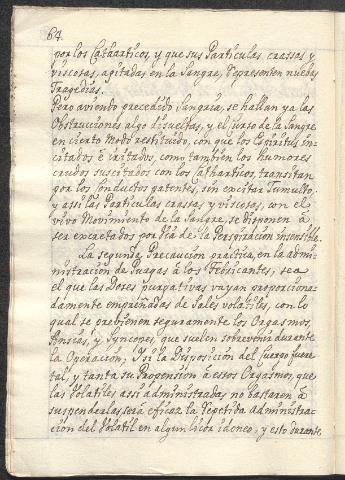 64.
por los Cathartícos, y que sus Partículas crassas y
viscosas, agitadas en la Sangre, representen nuebas
Tragedias.
Pero aviendo precedido Sangria, se hallan ya las
Obstrucciones algo disueltas, y el curso de la Sangre
en cierto modo restituido, con que los Espiritus in-
citados è iritados, como tambien los humores
crudos suscitados con los Catharticos, transitan
por los Conductos patentes, sin excitar Tumulto,
y assi las Particulas crassas y viscosas, con el
vivo Movimiento de la Sangre, se disponen à
ser excactados por Via de la Perspiracion insensible.
La segunda Precaucion practica, en la admi-
nistracion de Purgas à los Febricantes, sea
el que las Doses purgativas vayan proporciona-
damente empreñadas de Sales volatiles, con lo
qual se previenen seguramente los Orgasmos,
Ansias, y Syncopes, que suelen sobrevenir durante
la Operacion, Y si la Disposicion del cuerpo fuere
tal, y tanta su Propension à essos Orgasmos, que
las Volatiles assi administradas, no bastaren à
suspenderlas serà eficaz la repetida Administra-
cion del Volatil en algun licor idoneo, y esto durante